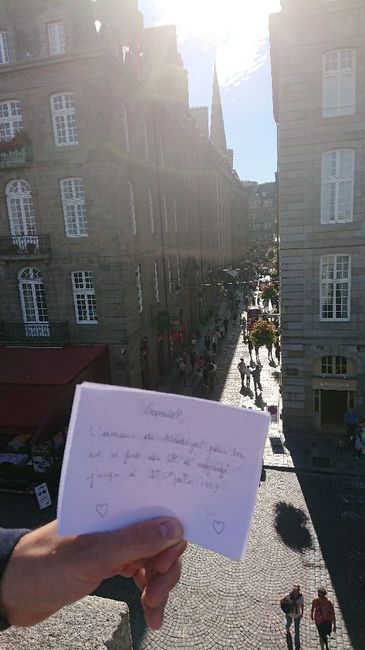 L'amour de Nadège pour toi
est si fort qu'il a voyagé
jusqu'à St Malo